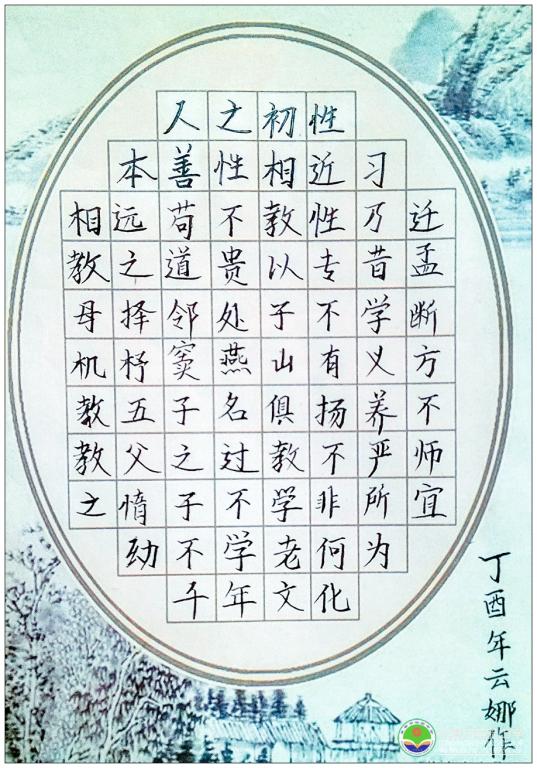 人之初性
本善性相近习
相远苟不教性乃迁
教之道贵以专昔孟
母择邻处子不学断
机杼窦燕山有义方
教五子名俱扬养不
教父之过教不严师
之惰子不学非所宜
幼不学老何为
千年文化
丁酉年云娜作